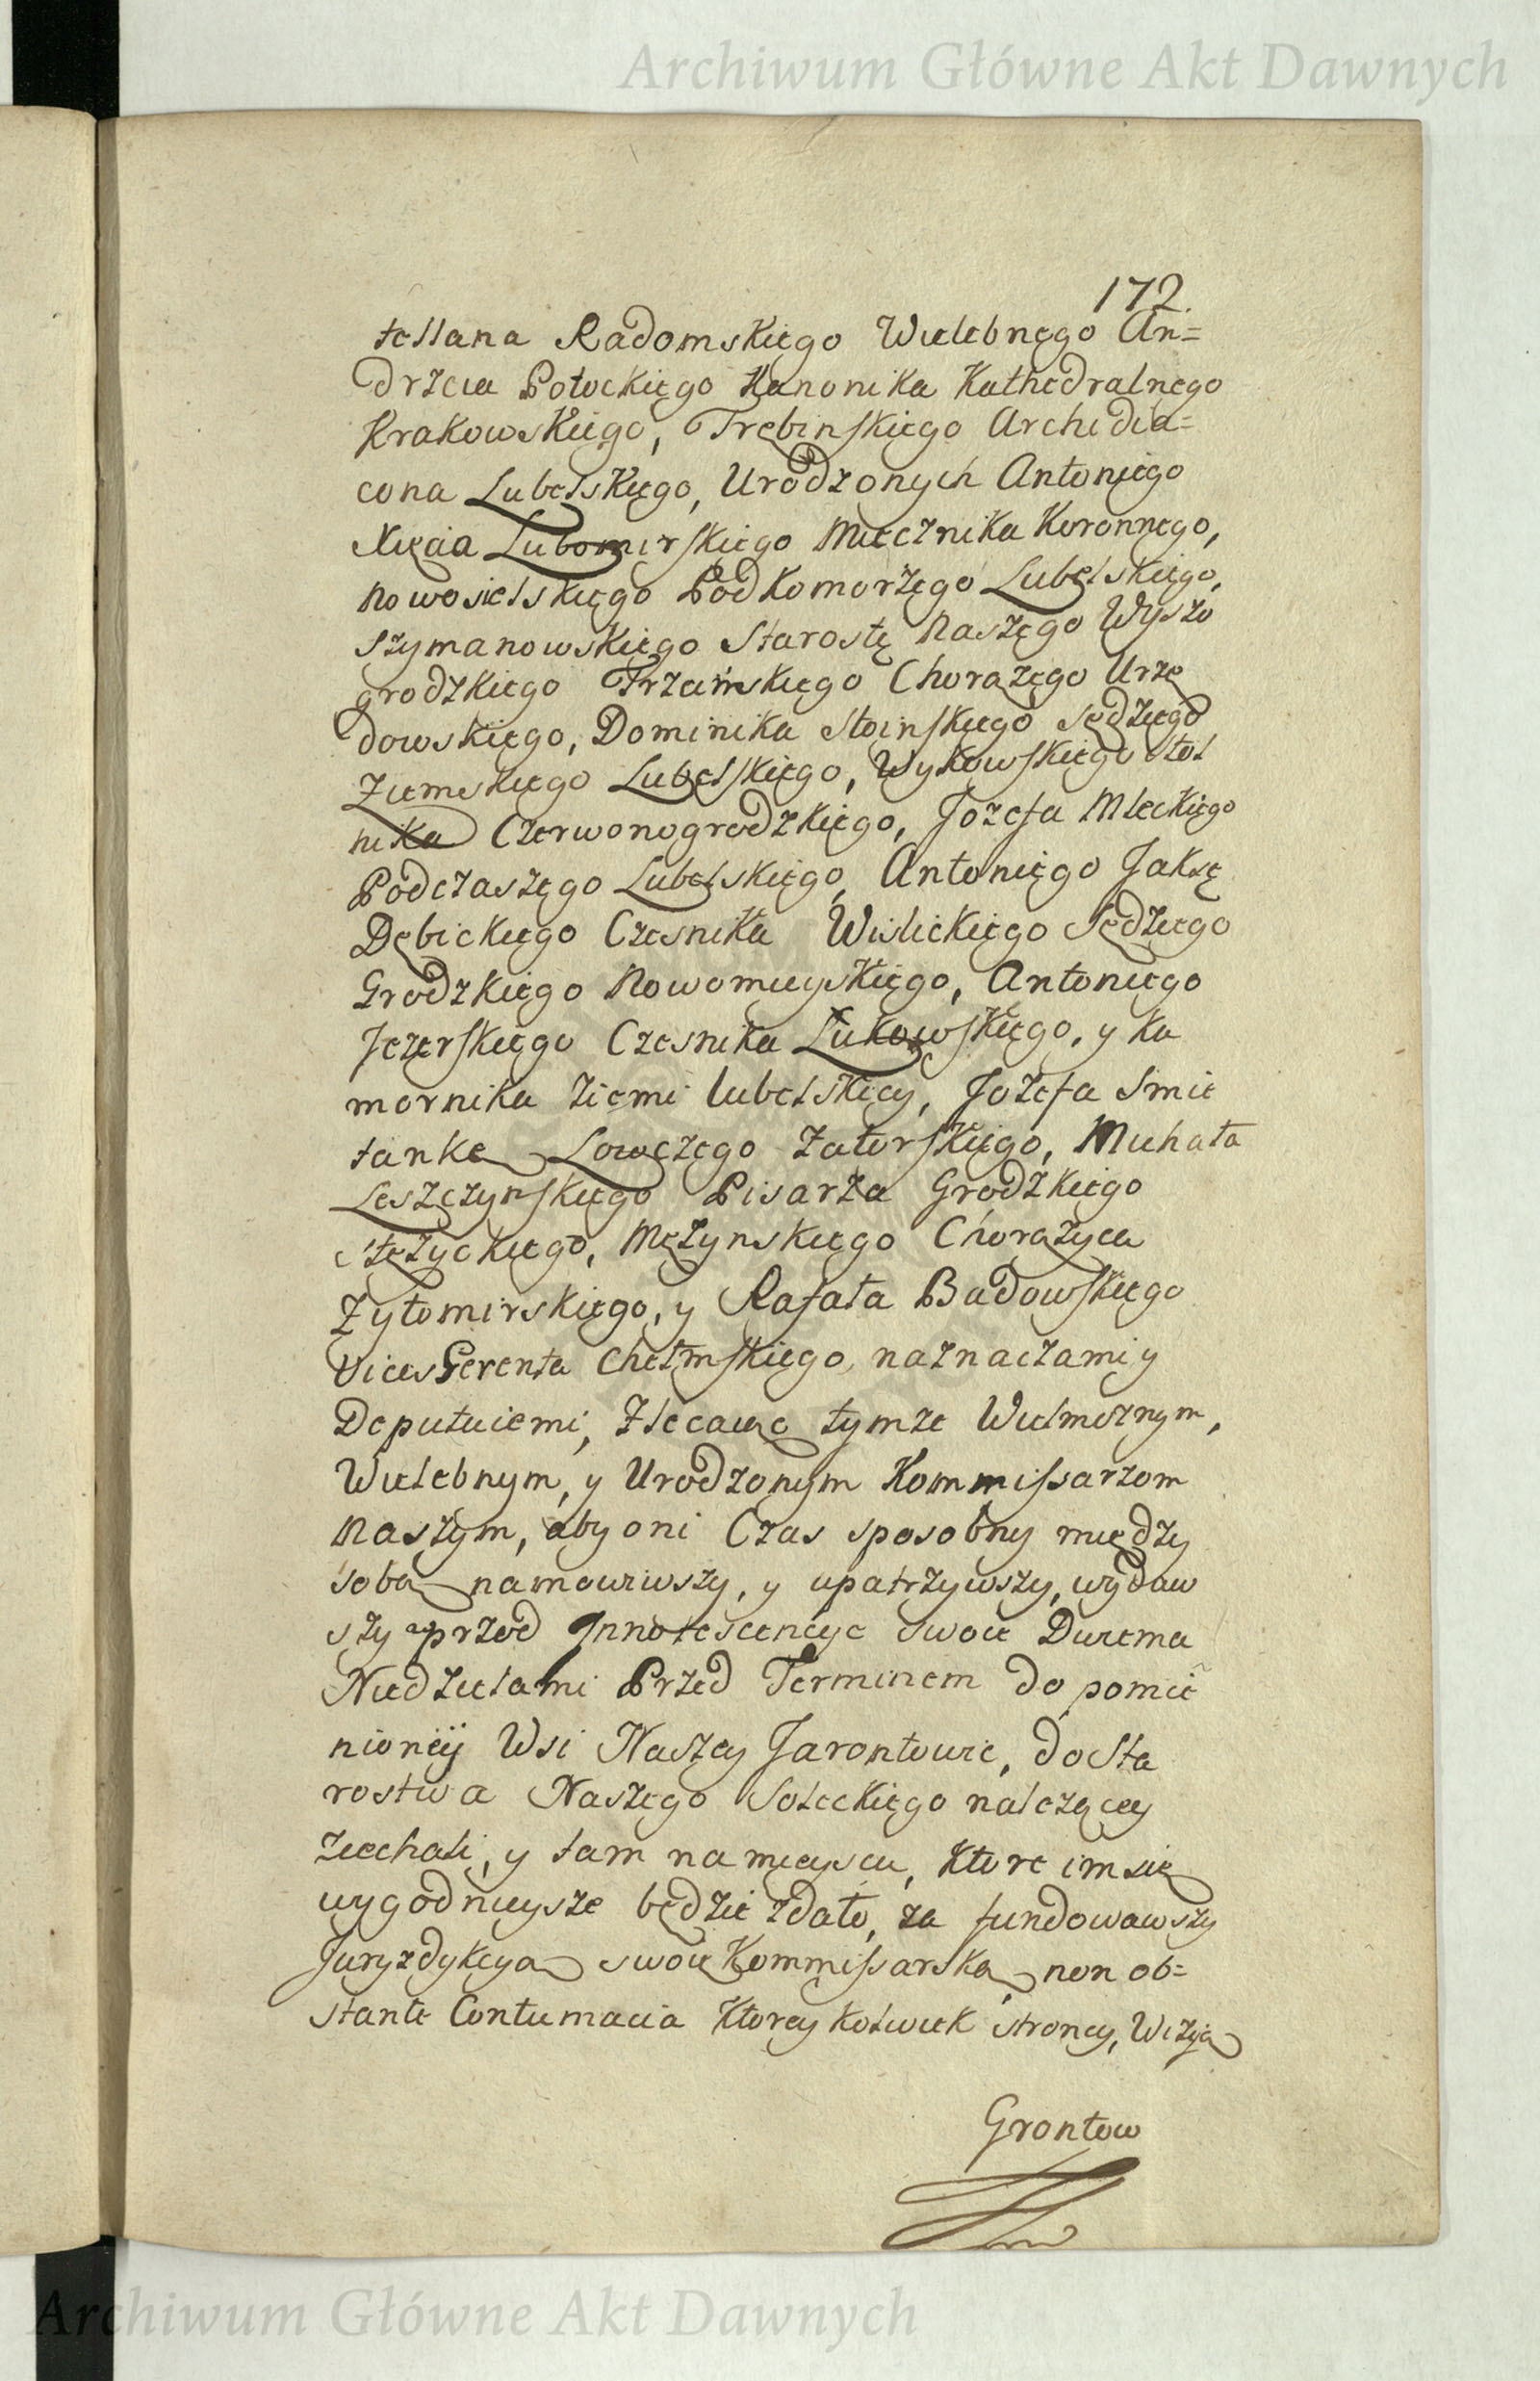 Archiwum Główne Akt Dawnych
172.
tellana Radomskiego Wielebnego An=
drzeia Potockiego Kanonika Kathedralnego
Krakowskiego, Trębinskiego Archidia=
cona Lubelskiego, Urodzonych Antoniego
Xięcia Lubomirskiego Miecznika Koronnego,
Nowosielskiego Podkomorzego Lubelskiego,
Szymanowskiego Starostę Naszego Wyszo
grodzkiego Trzcińskiego Chorążego Urzę
dowskiego, Dominika Stoinskiego Sędziego
Ziemskiego Lubelskiego, Wykowskiego Stol
nika Czerwonogrodzkiego, Jozefa Mleckiego
Podczaszego Lubelskiego, Antoniego Jaksę
Dębickiego Czesnika Wislickiego Sędziego
Grodzkiego Nowomieyskiego, Antoniego
Jezerskiego Czesnika Łukowskiego, y Ka
mornika Ziemi Lubelskiey, Jozefa Smie
tankę Łowczego Zatorskiego, Michała
Leszczynskiego Pisarza Grodzkiego
Stężyckiego, Mężynskiego Chorążyca
Zytomirskiego, y Rafała Badowskiego
VicesGerenta Chełmskiego, naznaczamy
Deputuiemi, Zlecaiąc tymze Wielmoznym,
Wielebnym, y Urodzonym Kommissarzom
Naszym, aby oni Czas sposobny między
sobą namowiwszy, y upatrzywszy, wydaw
szy przod Innotescencye swoie Dwiema
Niedzielami Przed Terminem do pomie
nioney Wsi Naszey Jarontowic, do Sta
rostwa Naszego Soleckiego należącey
ziechali, y tam na mieyscu, ktore im się
wygodnieysze będzie zdało, za fundowawszy
Juryzdykcyą swoię Kommissarską, non ob=
stante Contumacia Ktorey kolwiek strony, Wizyą
Grontow
Archiwum Główne Akt Dawnych